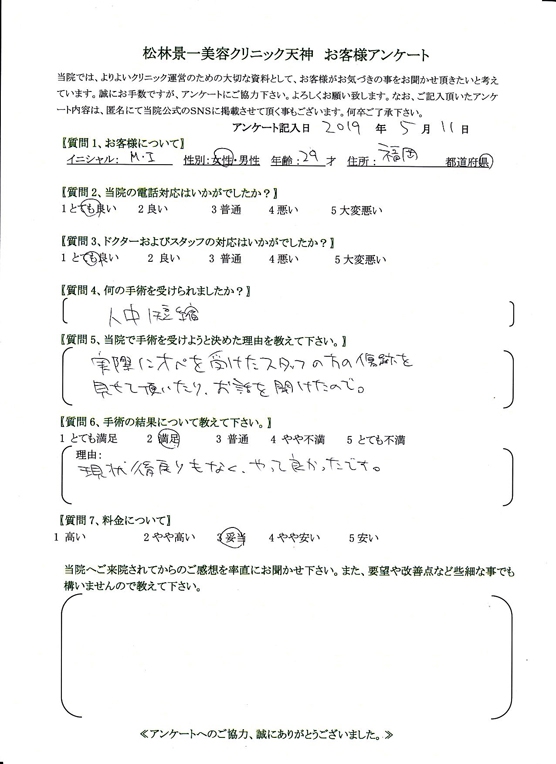 松林景一美容クリニック天神 お客様アンケート
当院では、よりよいクリニック運営のための大切な資料として、お客様がお気づきの事をお聞かせ頂きたいと考え
ています。誠にお手数ですが、アンケートにご協力下さい。よろしくお願い致します。なお、ご記入頂いたアンケ
ート内容は、匿名にて当院公式のSNSに掲載させて頂く事もございます。何卒ご了承下さい。
アンケート記入日 2019 年 5 月 11 日
〖質問1、お客様について〗
イニシャル: M・I 性別:女性・男性 年齢:29 才 住所: 福岡 都道府県
〖質問2、当院の電話対応はいかがでしたか?〗
1 とても良い 2 良い 3 普通 4 悪い 5 大変悪い
〖質問3、ドクターおよびスタッフの対応はいかがでしたか?〗
1 とても良い 2 良い 3 普通 4 悪い 5 大変悪い
〖質問4、何の手術を受けられましたか?〗
人中短縮
〖質問5、当院で手術を受けようと決めた理由を教えて下さい。〗
実際にオペを受けたスタッフの方の傷跡を
見せて頂いたり、お話を聞けたので。
〖質問6、手術の結果について教えて下さい。〗
1 とても満足 2 満足 3 普通 4 やや不満 5 とても不満
理由:
現状後戻りもなく、やって良かったです。
〖質問7、料金について〗
1 高い 2 やや高い 3 妥当 4 やや安い 5 安い
当院へご来院されてからのご感想を率直にお聞かせ下さい。また、要望や改善点など些細な事でも
構いませんので教えて下さい。
≪アンケートへのご協力、誠にありがとうございました。≫